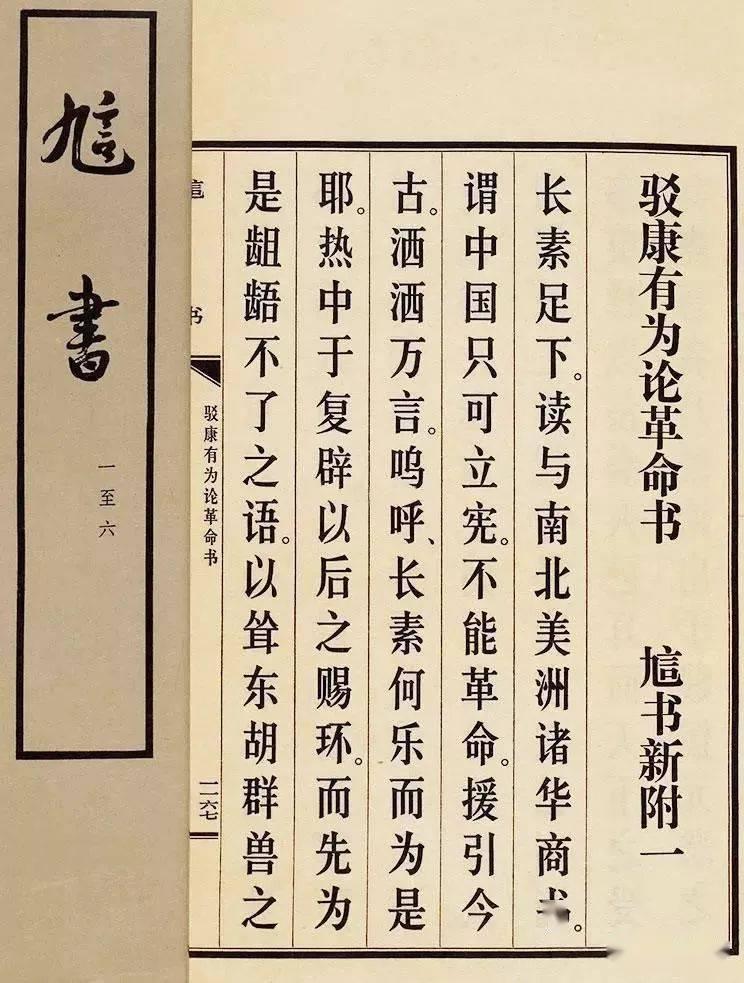 訄書
一至六
驳康有为论革命书 訄书新附一
长素足下。读与南北美洲诸华商书。
谓中国只可立宪。不能革命。援引今
古。洒洒万言。呜呼、长素何乐而为是
耶。热中于复辟以后之赐环。而先为
是龃龉不了之语。以耸东胡群兽之
訄书
驳康有为论革命书
一二六七